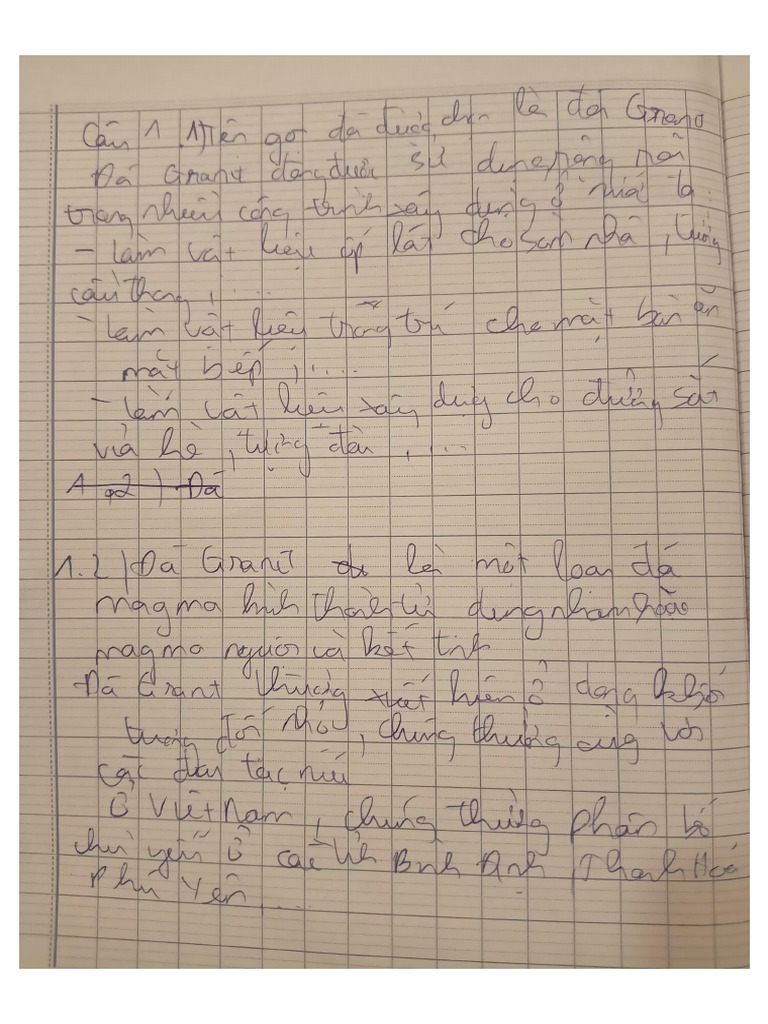 Câu 1 .1) Tên gọi đá được chọn là đá Grano
Đá Granit đang được sử dụng rộng rãi
trong nhiều công trình xây dựng ở nước ta
- Làm vật liệu ốp lát cho sàn nhà, tường
cầu thang, ....
- Làm vật liệu trang trí cho mặt bàn ăn
mặt bếp, .....
- Làm vật liệu xây dựng cho đường sắt
vỉa hè, tượng đàn, ....
1.2) Đá
1.2) Đá Granit là một loại đá
magma hình thành từ dung nham hoặc
magma nguội và kết tinh
Đá Granit thường xuất hiện ở dạng khối
tương đối nhỏ, chúng thường cùng với
các
Ở Việt Nam, chúng thường phân bố
chủ yếu ở các tỉnh Bình Định, Thanh Hoá
Phú Yên, ....